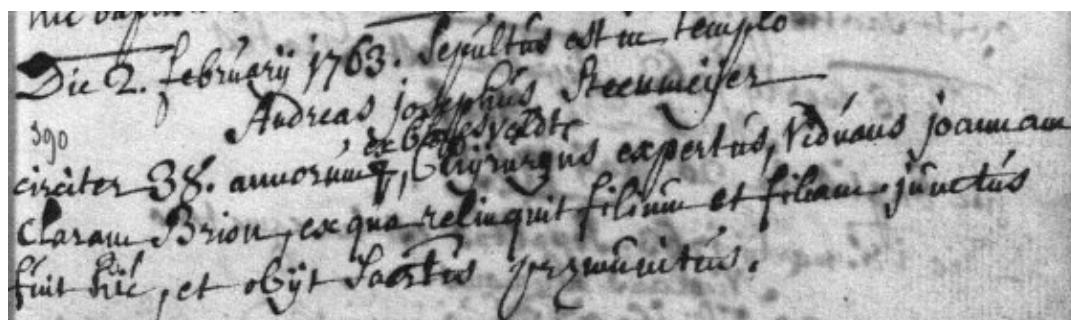 Die 2. februarÿ 1763. Sepultus est in templo
Andreas josephus Steenmeijer
390
ex Coesveldt
circiter 38. annorum, Chÿrurgus expertus, viduans joannam
Claram Brion, ex qua relinquit filium et filiam. junctus
fuit hîc, et obÿt Sacrtis præmunitus.